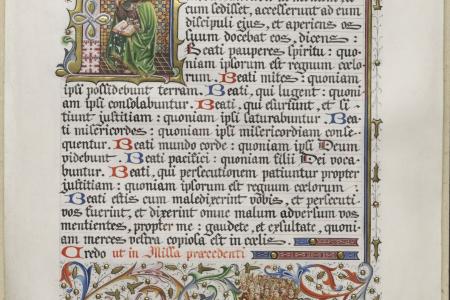 cum sedisset, accesserunt ad eum
discipuli ejus, et aperiens os
suum docebat eos, dicens:
Beati pauperes spiritu: quo-
niam ipsorum est regnum cœlo-
rum. Beati mites: quoniam
ipsi possidebunt terram. Beati, qui lugent: quoni-
am ipsi consolabuntur. Beati, qui esuriunt, et si-
tiunt justitiam: quoniam ipsi saturabuntur. Bea-
ti misericordes: quoniam ipsi misericordiam conse-
quentur. Beati mundo corde: quoniam ipsi Deum
videbunt. Beati pacifici: quoniam filii Dei voca-
buntur. Beati, qui persecutionem patiuntur propter
justitiam: quoniam ipsorum est regnum cœlorum.
Beati estis cum maledixerint vobis, et persecuti
vos fuerint, et dixerint omne malum adversum vos
mentientes, propter me: gaudete, et exsultate, quoni-
am merces vestra copiosa est in cœlis.
Credo ut in Missa præcedenti